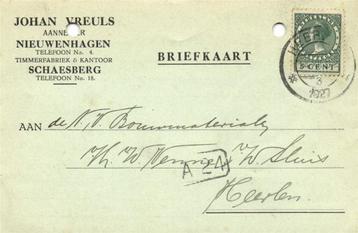 JOHAN VREULS
AANNEMER
NIEUWENHAGEN
TELEFOON No. 4.
TIMMERFABRIEK & KANTOOR
SCHAESBERG
TELEFOON No. 18.
BRIEFKAART
5 CENT
1927
AAN de N.V. Bouwmaterialen
v/h W
A 24
Heerlen